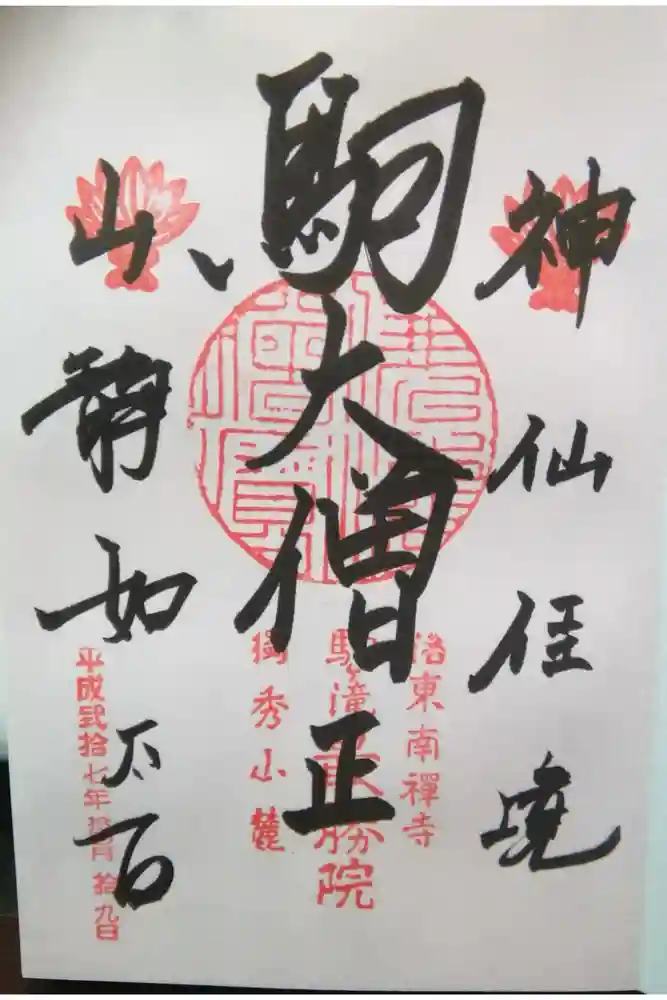 神仙佳境
駒大僧正
山静如太古
洛東南禪寺
駒ヶ滝最勝院
獨秀小麓
平成弐拾七年拾月拾九日